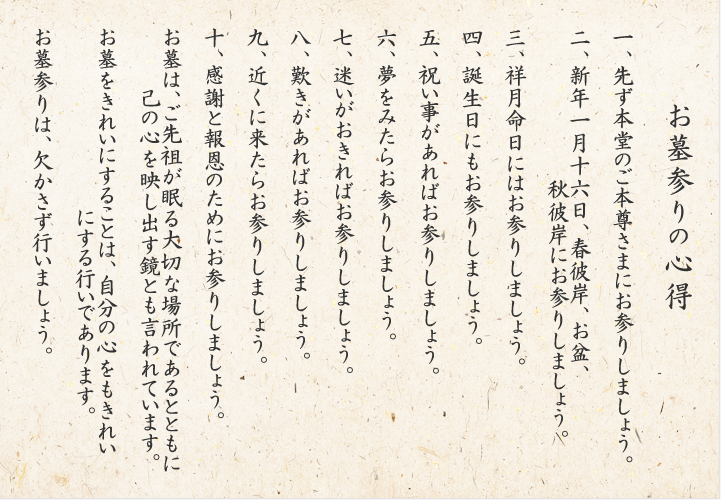 お墓参りの心得
一、先ず本堂のご本尊さまにお参りしましょう。
二、新年一月十六日、春彼岸、お盆、
秋彼岸にお参りしましょう。
三、祥月命日にはお参りしましょう。
四、誕生日にもお参りしましょう。
五、祝い事があればお参りしましょう。
六、夢をみたらお参りしましょう。
七、迷いがおきればお参りしましょう。
八、歎きがあればお参りしましょう。
九、近くに来たらお参りしましょう。
十、感謝と報恩のためにお参りしましょう。
お墓は、ご先祖が眠る大切な場所であるとともに
己の心を映し出す鏡とも言われています。
お墓をきれいにすることは、自分の心をもきれい
にする行いであります。
お墓参りは、欠かさず行いましょう。